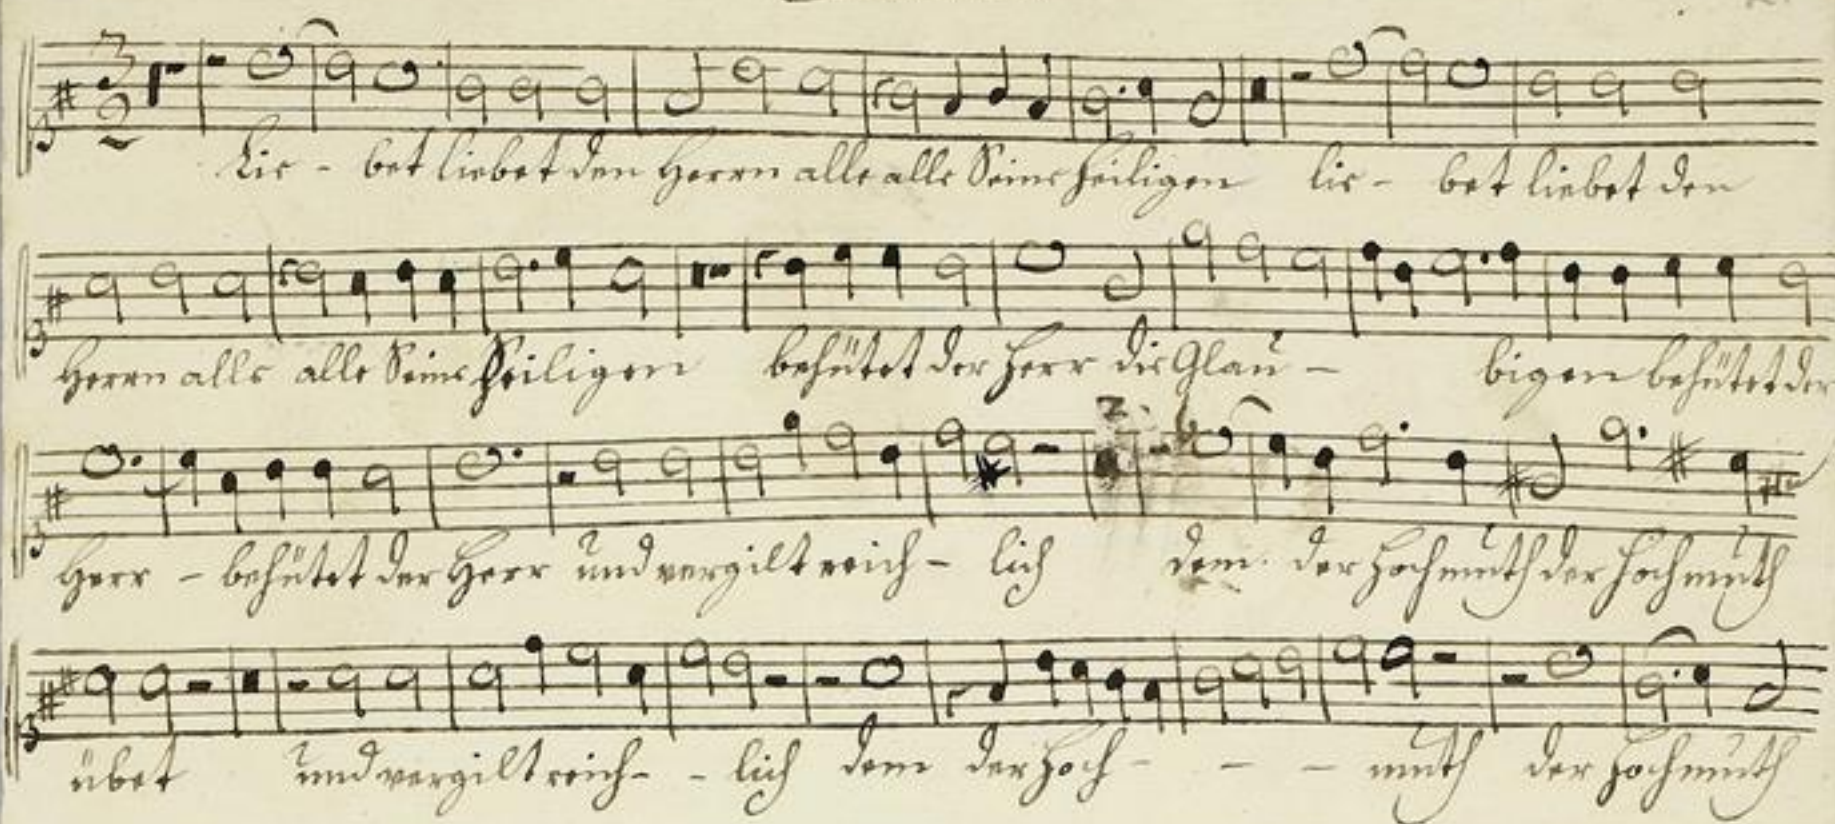 Lie - bet liebet den Herrn alle alle Seine heiligen lie - bet liebet den
Herrn alle alle Seine Heiligen behütet der Herr die Glau - bigen behütet der
Herr - behütet der Herr und vergilt reich - lich dem der hochmuth der hochmuth
übet und vergilt reich - - lich dem der hoch - - - muth der hochmuth